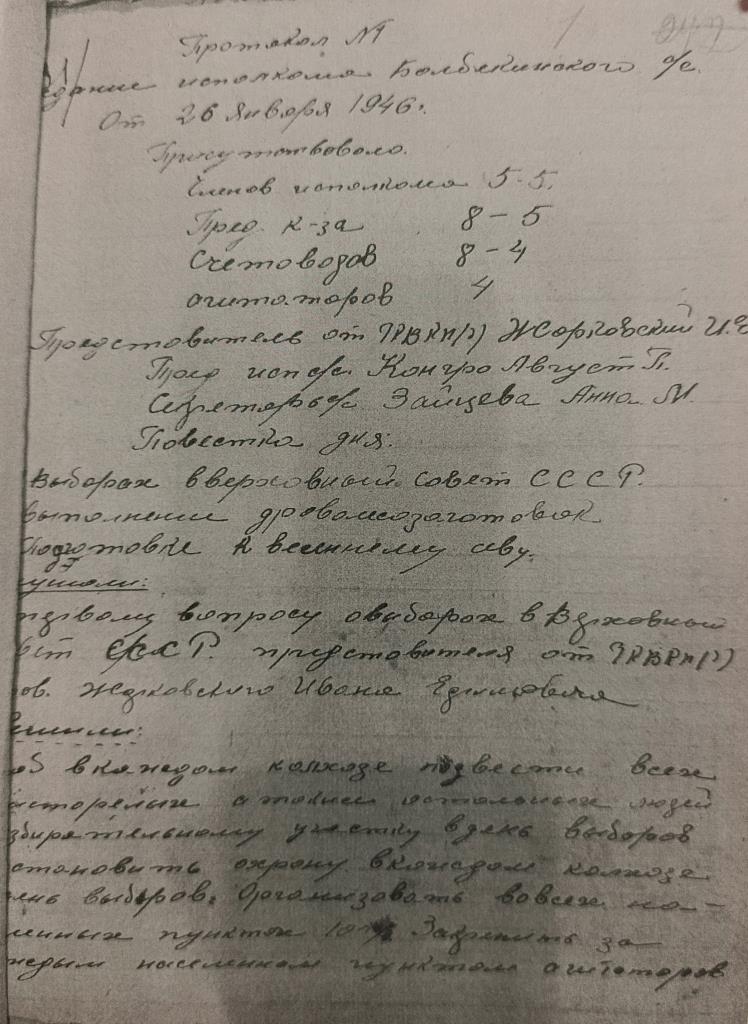 Протокол №1
едание исполкома Болбекинского с/с.
От 26 Января 1946г.
Присутствовало.
Членов исполкома 5-5.
Пред. к-за 8-5
Счетоводов 8-4
агитаторов 4
Представитель от РВКП(б) И.Е
Пред исп с/с Конгро Август П.
Секретарь с/с Зайцева Анна М.
Повестка дня:
выборах в верховный совет СССР.
выполнении дроволесозаготовок
Подготовке к весеннему севу.
ушали:
первому вопросу о выборах в Верховный
вет СССР. представителя от РВКП(б)
ов. Ивана
ешили:
об в каждом колхозе подвести всех
астарелых а также остальных людей
збирательному участку в день выборов
становить охрану в каждом колхозе
ень выборов. Организовать во всех на-
ленных пунктах Закрепить за
ждым населенном пунктом агитаторов